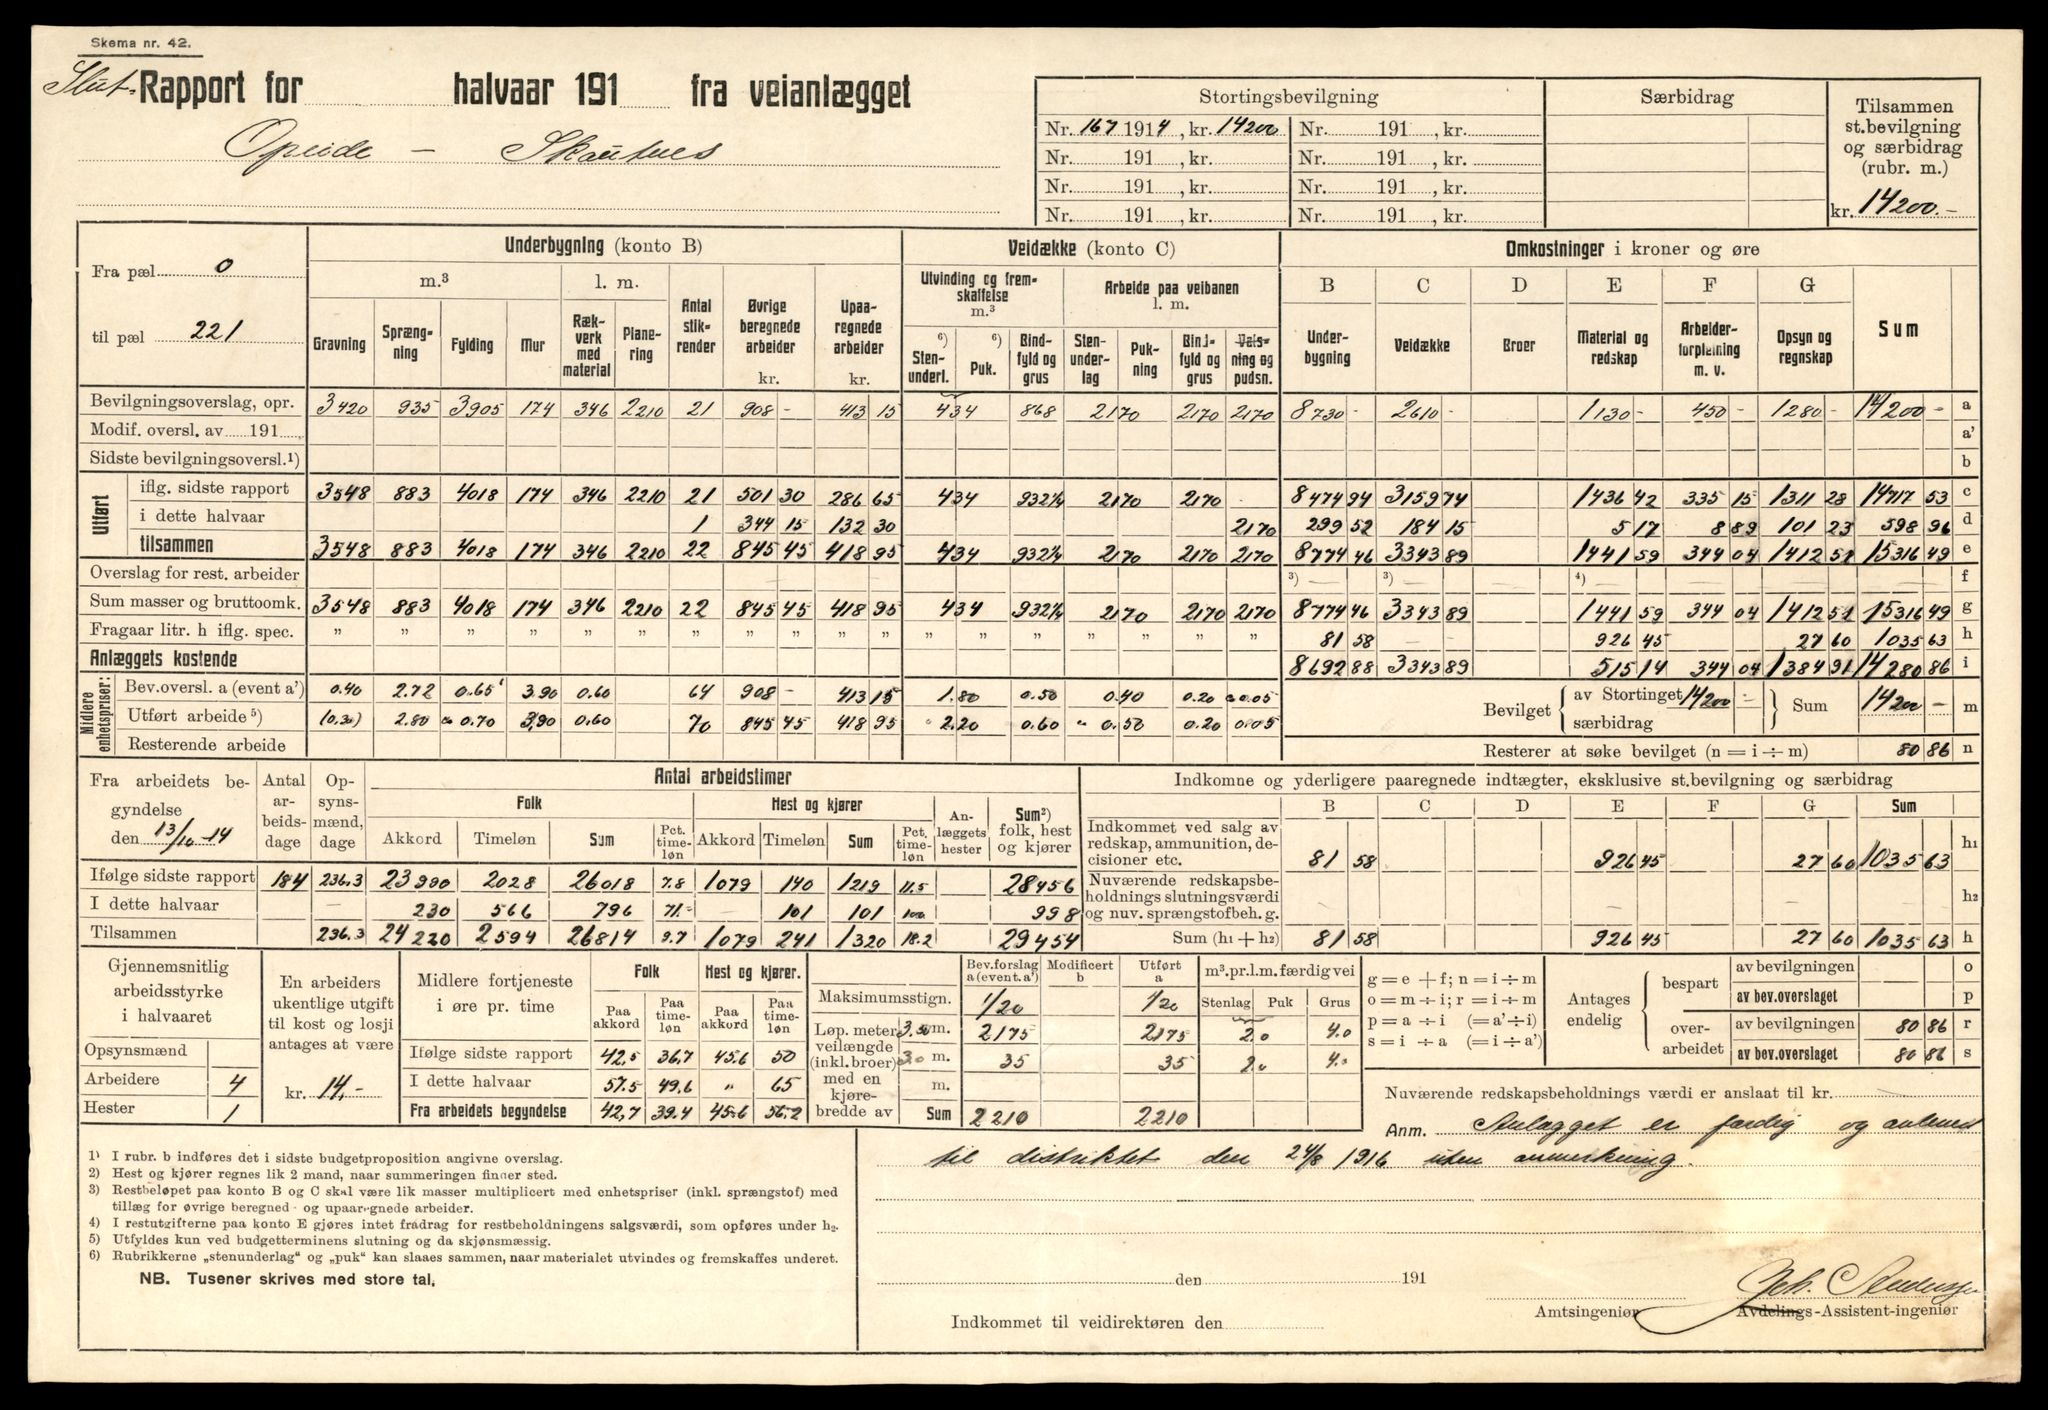 Skema nr. 42.
Slut- Rapport for halvaar 191 fra veianlægget
Opeide - Skutnes
Stortingsbevilgning
Særbidrag
Tilsammen st.bevilgning og særbidrag (rubr. m.)
Nr. 167 1914, kr. 14200 Nr. 191 , kr.
Nr. 191 , kr. Nr. 191 , kr.
Nr. 191 , kr. Nr. 191 , kr.
Nr. 191 , kr. Nr. 191 , kr.
kr. 14200.-
Fra pæl 0
til pæl 221
Underbygning (konto B)
m.³ l. m.
Gravning Sprængning Fylding Mur Rækverk med material Planering Antal stikrender Øvrige beregnede arbeider kr. Upaaregnede arbeider kr.
Veidække (konto C)
Utvinding og fremskaffelse m.³ Arbeide paa veibanen l. m.
6) Stenunderl. 6) Puk. Bindfyld og grus Stenunderlag Pukning Bindfyld og grus Valsning og pudsn.
Omkostninger i kroner og øre
B C D E F G Sum
Underbygning Veidække Broer Material og redskap Arbeiderforpleining m. v. Opsyn og regnskap
Bevilgningsoverslag, opr. 3420 935 3905 174 346 2210 21 908 - 413 15 434 868 2170 2170 2170 8730 - 2610 - 1130 - 450 - 1280 - 14200 - a
Modif. oversl. av 191 a'
Sidste bevilgningsoversl.¹) b
Utført
iflg. sidste rapport 3548 883 4018 174 346 2210 21 501 30 286 65 434 932¼ 2170 2170 - 8474 94 3159 74 1436 42 335 15 1311 28 14717 53 c
i dette halvaar 1 344 15 132 30 2170 299 52 184 15 5 17 8 89 101 23 598 96 d
tilsammen 3548 883 4018 174 346 2210 22 845 45 418 95 434 932¼ 2170 2170 2170 8774 46 3343 89 1441 59 344 04 1412 51 15316 49 e
Overslag for rest. arbeider 3) — 3) — 4) — — — — f
Sum masser og bruttoomk. 3548 883 4018 174 346 2210 22 845 45 418 95 434 932¼ 2170 2170 2170 8774 46 3343 89 1441 59 344 04 1412 51 15316 49 g
Fragaar litr. h iflg. spec. „ „ „ „ „ „ „ „ „ „ „ „ „ „ „ „ „ „ 81 58 — — 926 45 27 60 1035 63 h
Anlæggets kostende 8692 88 3343 89 515 14 344 04 1384 91 14280 86 i
Midlere enhetspriser:
Bev.oversl. a (event a') 0.40 2.72 0.65 3.90 0.60 64 908 - 413 15 1.80 0.50 0.40 0.20 0.05
Utført arbeide ⁵) (0.30) 2.80 0.70 3,90 0.60 70 845 45 418 95 " 2.20 0.60 " 0.50 0.20 0.05
Resterende arbeide
Bevilget av Stortinget 14200 - særbidrag Sum 14200 - m
Resterer at søke bevilget (n = i ÷ m) 80 86 n
Fra arbeidets begyndelse den 13/10-14
Antal arbeidsdage
Opsynsmænd, dage
Antal arbeidstimer
Folk Hest og kjører Anlæggets hester Sum²) folk, hest og kjører
Akkord Timeløn Sum Pct. timeløn Akkord Timeløn Sum Pct. timeløn
Ifølge sidste rapport 184 236.3 23990 2028 26018 7.8 1079 140 1219 11.5 28456
I dette halvaar — 230 566 796 71.- — 101 101 100 998
Tilsammen 236.3 24220 2594 26814 9.7 1079 241 1320 18.2 29454
Indkomne og yderligere paaregnede indtægter, eksklusive st.bevilgning og særbidrag
B C D E F G Sum
Indkommet ved salg av redskap, ammunition, decisioner etc. 81 58 926 45 27 60 1035 63 h1
Nuværende redskapsbeholdnings slutningsværdi og nuv. sprængstofbeh. g. h2
Sum (h1 + h2) 81 58 926 45 27 60 1035 63 h
Gjennemsnitlig arbeidsstyrke i halvaaret
Opsynsmænd
Arbeidere 4
Hester 1
En arbeiders ukentlige utgift til kost og losji antages at være
kr. 14,-
Midlere fortjeneste i øre pr. time
Folk Hest og kjører.
Paa akkord Paa timeløn Paa akkord Paa timeløn
Ifølge sidste rapport 42,5 36,7 45.6 50
I dette halvaar 57.5 49.6 " 65
Fra arbeidets begyndelse 42,7 39.4 45.6 56.2
Bev.forslag a (event. a') Modificert b Utført a m³.pr.l.m.færdig vei
Maksimumsstign. 1/20 1/20 Stenlag Puk Grus
Løp. meter veilængde (inkl.broer) med en kjørebredde av
3.50 m. 2175 2175 2.0 4.0
3.0 m. 35 35 2.0 4.0
m.
Sum 2210 2210
g = e + f; n = i ÷ m
o = m ÷ i; r = i ÷ m
p = a ÷ i (= a' ÷ i)
s = i ÷ a (= i ÷ a')
Antages endelig
bespart av bevilgningen o
av bev.overslaget p
overarbeidet av bevilgningen 80 86 r
av bev.overslaget 80 86 s
Nuværende redskapsbeholdnings værdi er anslaat til kr.
Anm. Anlægget er færdig og avlevert
til distriktet den 24/8 1916 uten anmerkning.
1) I rubr. b indføres det i sidste budgetproposition angivne overslag.
2) Hest og kjører regnes lik 2 mand, naar summeringen finder sted.
3) Restbeløpet paa konto B og C skal være lik masser multiplicert med enhetspriser (inkl. sprængstof) med
tillæg for øvrige beregned- og upaaregnede arbeider.
4) I restutgifterne paa konto E gjøres intet fradrag for restbeholdningens salgsværdi, som opføres under h2.
5) Utfyldes kun ved budgetterminens slutning og da skjønsmæssig.
6) Rubrikkerne „stenunderlag" og „puk" kan slaaes sammen, naar materialet utvindes og fremskaffes underet.
NB. Tusener skrives med store tal.
den 191
Joh. Andersen
Amtsingeniør Avdelings-Assistent-ingeniør
Indkommet til veidirektøren den